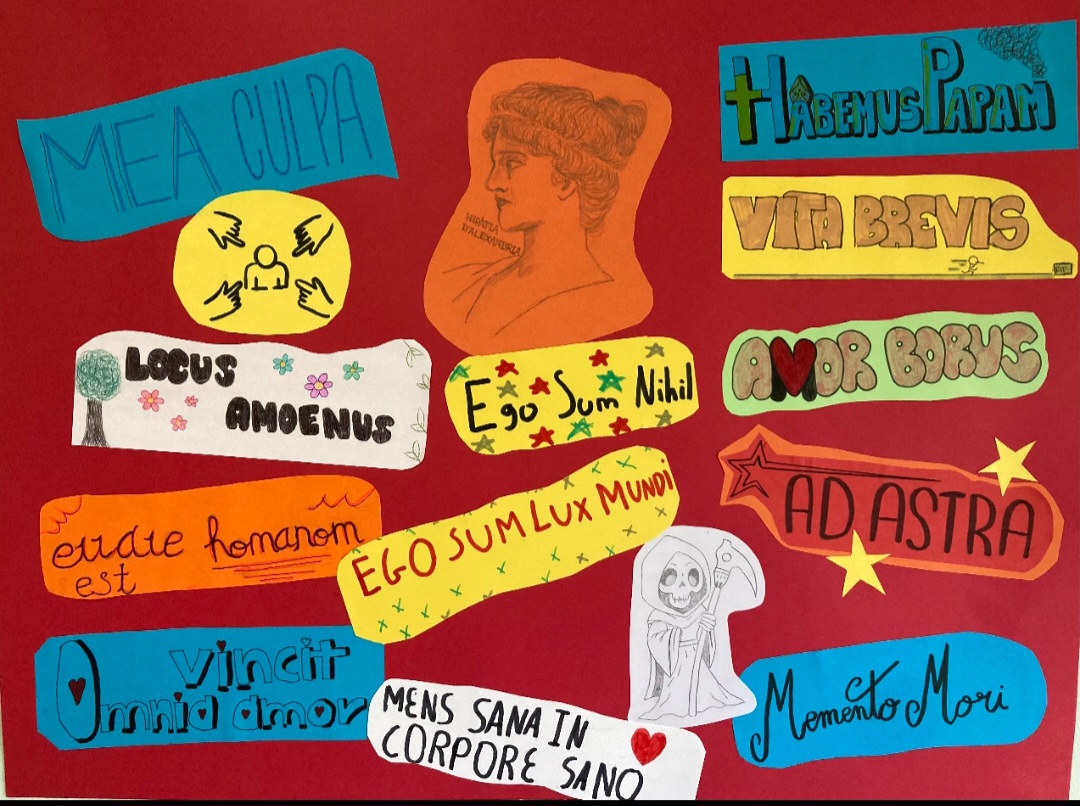 MEA CULPA
HIPATIA
D'ALEXANDRIA
HABEMUS PAPAM
VITA BREVIS
LOCUS
AMOENUS
Ego Sum Nihil
AMOR BORUS
AD ASTRA
homanom
est
EGO SUM LUX MUNDI
Omnia vincit amor
MENS SANA IN
CORPORE SANO
Memento Mori